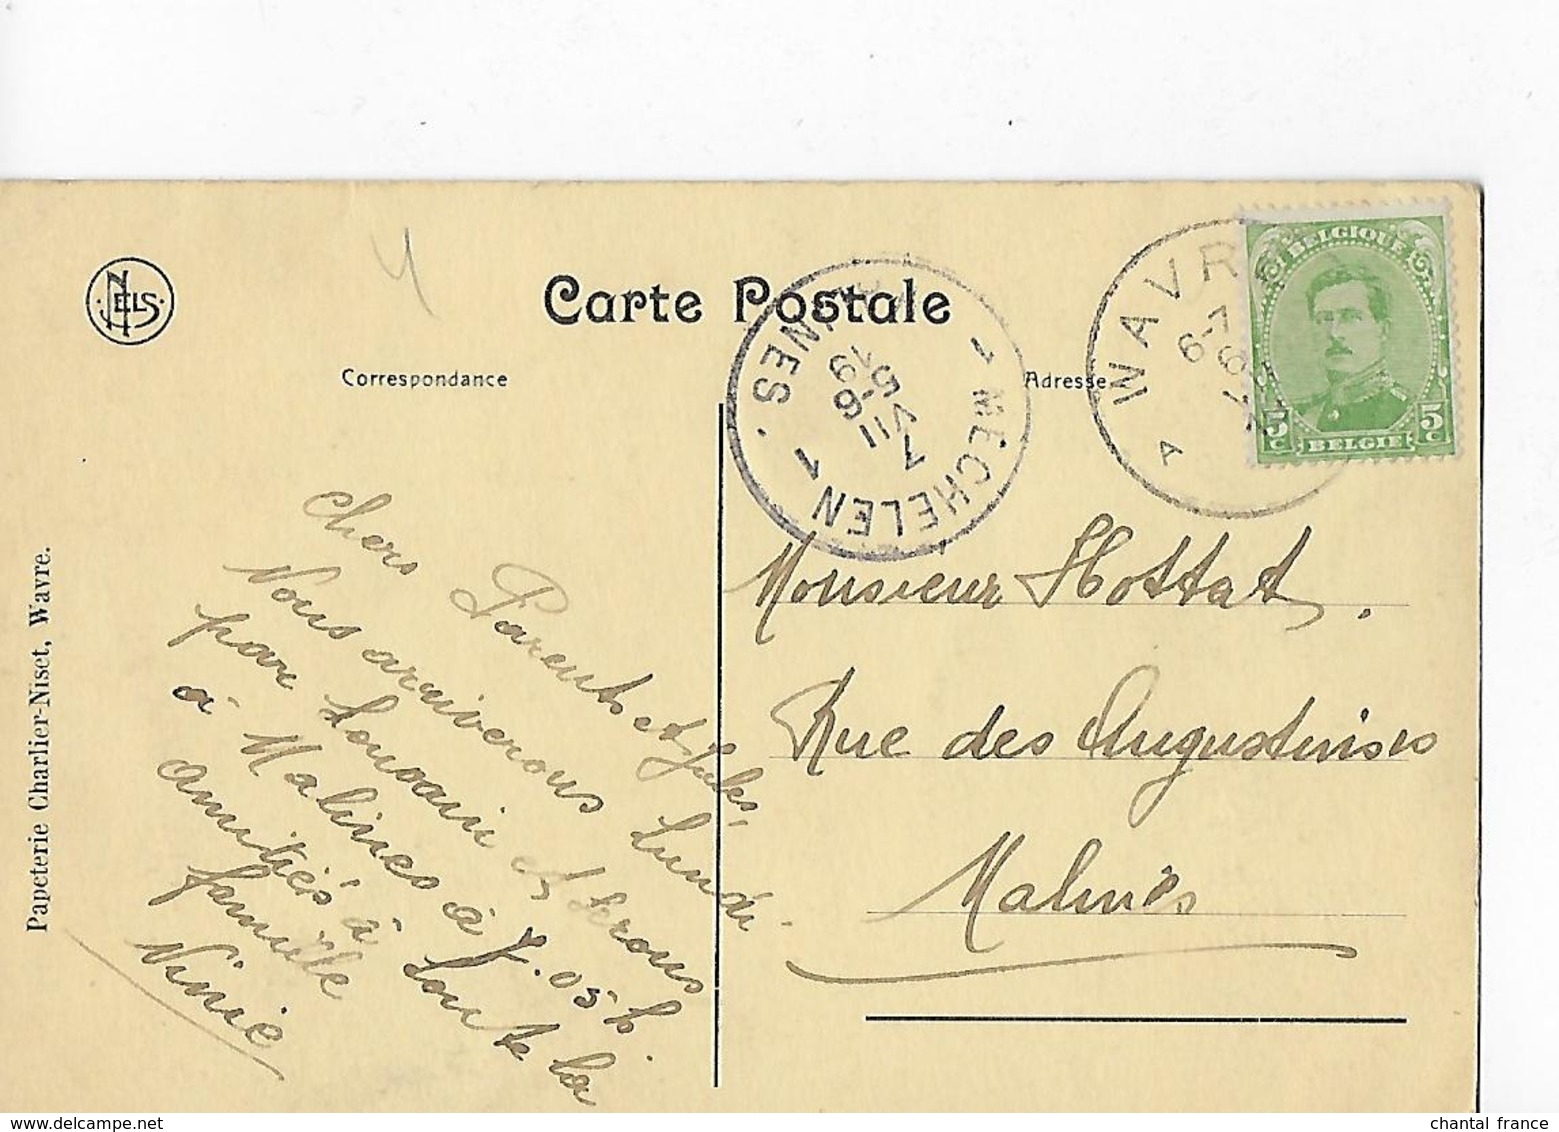 NELS
Carte Postale
Correspondance
Adresse
1 MECHELEN 1
7
VII
5-6
19
WAVRE
A
BELGIQUE
5c 5c
BELGIE
Papeterie Charlier-Niset, Wavre.
Chers Parents et Jules,
Nous arriverons Lundi
par Louvain et serons
à Malines à 7.05 h.
amitiés à toute la
famille
Ninie
Monsieur Hottat.
Rue des Augustines
Malines
chantal france